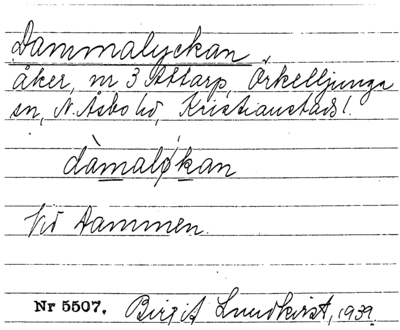 Dammalyckan
åker, nr 3 Attarp, Örkelljunga
sn, N. Åsbo hd, Kristianstads l.
dàmaløkan
Vid dammen.
Nr 5507. Birgit Lundkvist, 1939.